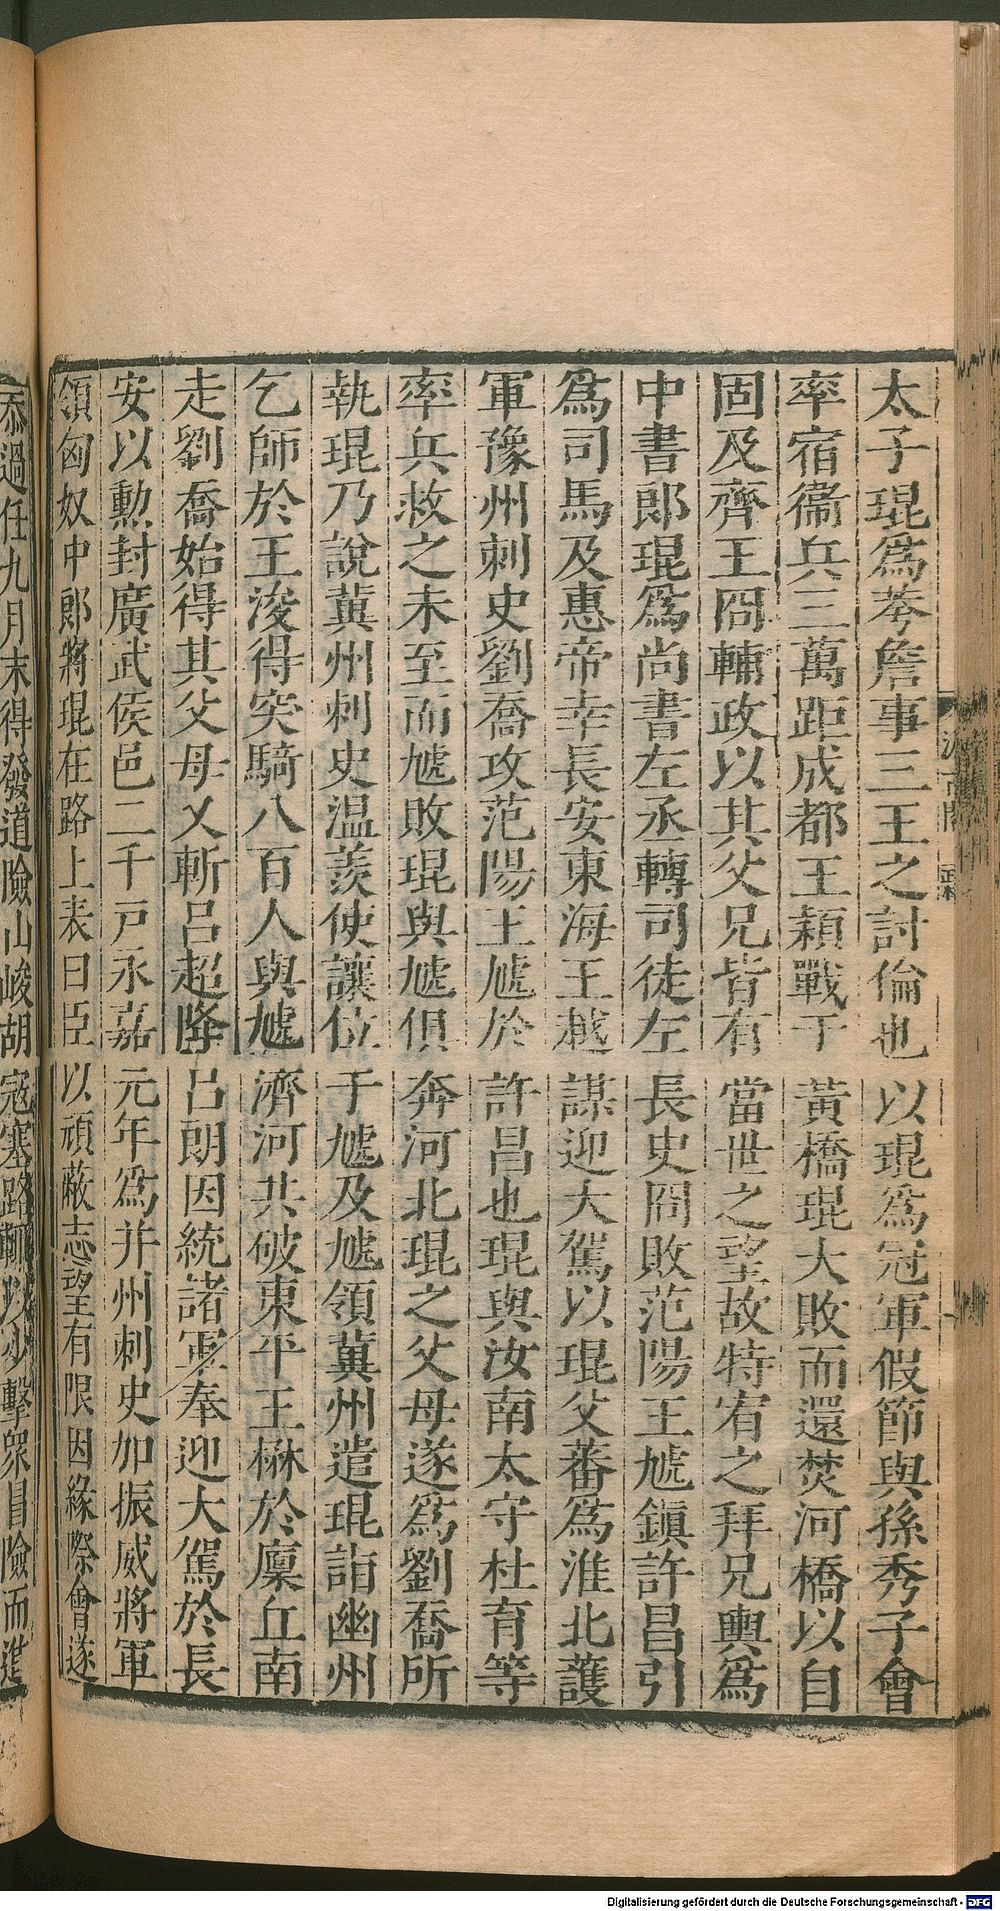 太子琨爲荂詹事三王之討倫也以琨爲冠軍假節與孫秀子會
率宿衞兵三萬距成都王穎戰于黃橋琨大敗而還焚河橋以自
固及齊王冏輔政以其父兄皆有當世之望故特宥之拜兄輿爲
中書郎琨爲尚書左丞轉司徒左長史冏敗范陽王虓鎮許昌引
爲司馬及惠帝幸長安東海王越謀迎大駕以琨父蕃爲淮北護
軍豫州刺史劉喬攻范陽王虓於許昌也琨與汝南太守杜育等
率兵救之未至而虓敗琨與虓俱奔河北琨之父母遂爲劉喬所
執琨乃說冀州刺史温羨使讓位于虓及虓領冀州遣琨詣幽州
乞師於王浚得突騎八百人與虓濟河共破東平王楙於廩丘南
走劉喬始得其父母又斬呂超降呂朗因統諸軍奉迎大駕於長
安以勳封廣武侯邑二千戸永嘉元年爲并州刺史加振威將軍
領匈奴中郎將琨在路上表曰臣以頑蔽志望有限因緣際會遂
忝過任九月末得發道險山峻胡寇塞路輒以少擊衆冒險而進
Digitalisierung gefördert durch die Deutsche Forschungsgemeinschaft - DFG